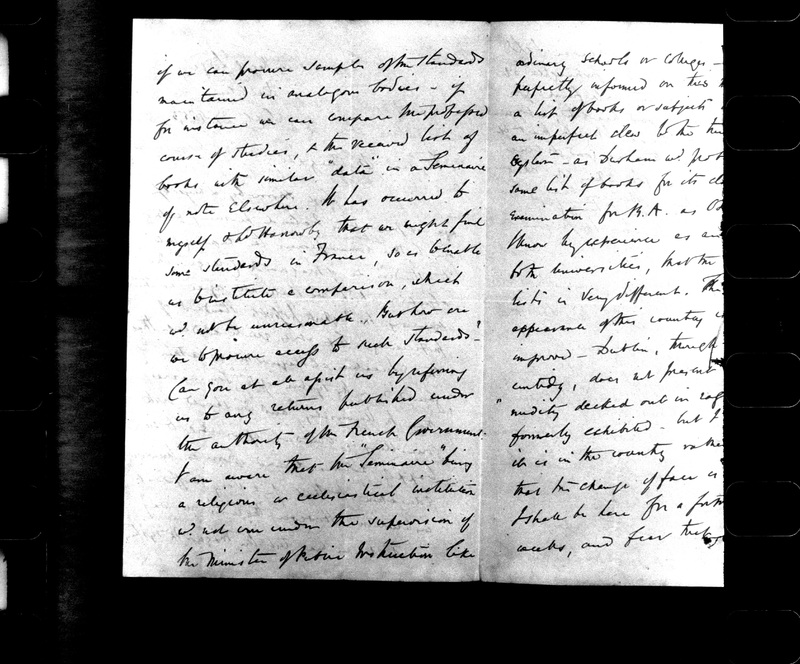 if we can procure samples of the standards
maintained in analogous bodies - if
for instance we can compare the professed
course of studies, & the received list of
books with similar "data" in a Seminaire
of note elsewhere. It has occurred to
myself & Ld Harrowby that we might find
some standards in France, so as to enable
us to institute a comparison, which
wd not be unreasonable. But how are
we to procure access to such standards -
Can you at all assist us by referring
us to any returns published under
the authority of the French Government.
I am aware that the "Seminaire" being
a religious or ecclesiastical institution
wd not come under the supervision of
the Minister of Public Instruction like
ordinary schools or colleges -
perfectly informed on this
a list of books or subjects
an imperfect clew to the
system - as Durham wd
some list of books for its
Examination for B.A. as
know by experience as
both Universities, that the
lists is very different. The
appearance of this country
improved - Dublin, through
entirely, does not present
"nudity decked out in rags
formerly exhibited - but I
it is in the country
that the change of face is
I shall be here for a
weeks, and fear that